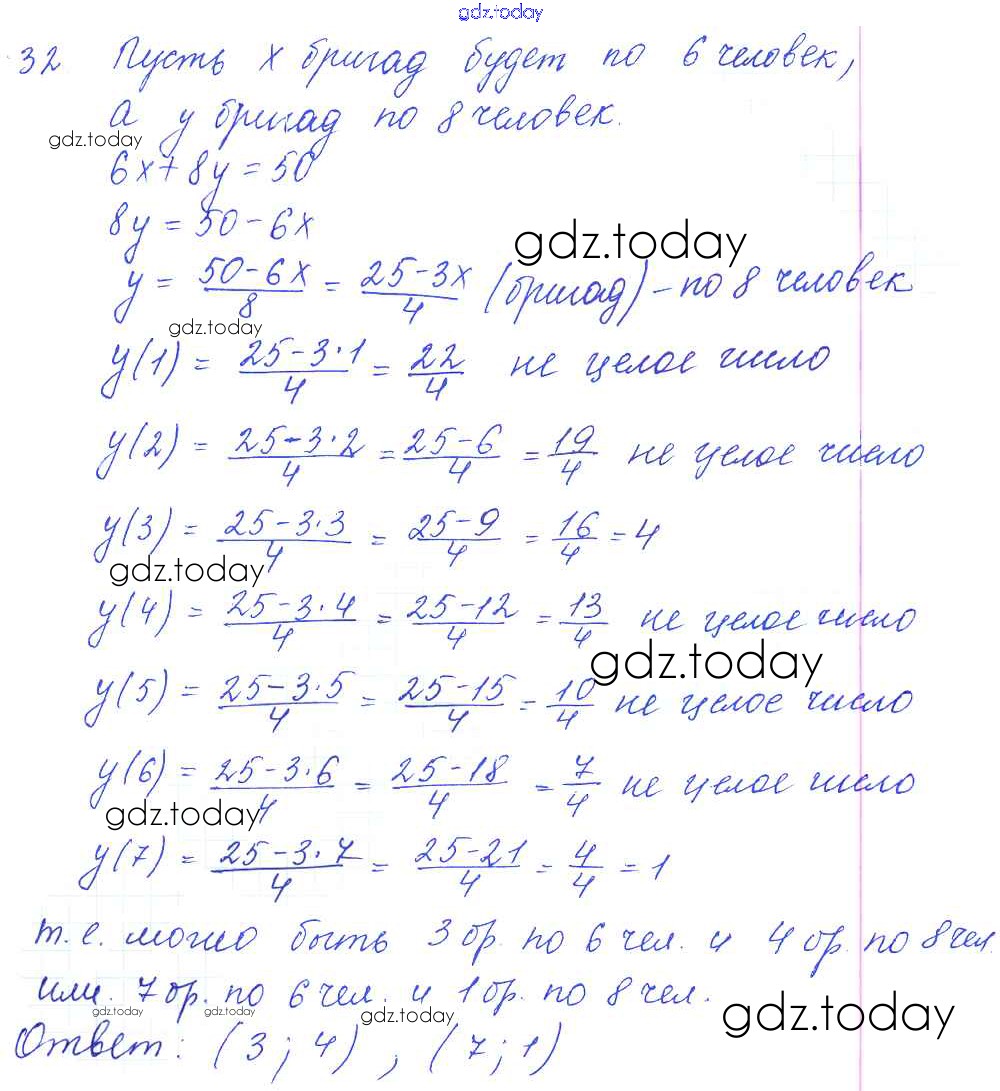 gdz.today
32 Пусть x бригад будет по 6 человек,
а y бригад по 8 человек.
gdz.today
6x+8y=50
8y = 50-6x
gdz.today
y = \frac{50-6x}{8} = \frac{25-3x}{4} (бригад) - по 8 человек
gdz.today
y(1) = \frac{25-3·1}{4} = \frac{22}{4} не целое число
y(2) = \frac{25-3·2}{4} = \frac{25-6}{4} = \frac{19}{4} не целое число
y(3) = \frac{25-3·3}{4} = \frac{25-9}{4} = \frac{16}{4} = 4
gdz.today
y(4) = \frac{25-3·4}{4} = \frac{25-12}{4} = \frac{13}{4} не целое число
gdz.today
y(5) = \frac{25-3·5}{4} = \frac{25-15}{4} = \frac{10}{4} не целое число
y(6) = \frac{25-3·6}{4} = \frac{25-18}{4} = \frac{7}{4} не целое число
gdz.today
y(7) = \frac{25-3·7}{4} = \frac{25-21}{4} = \frac{4}{4} = 1
т.е. могло быть 3 бр. по 6 чел. и 4 бр. по 8 чел.
или 7 бр. по 6 чел. и 1 бр. по 8 чел.
gdz.today gdz.today gdz.today gdz.today
Ответ: (3; 4), (7; 1)